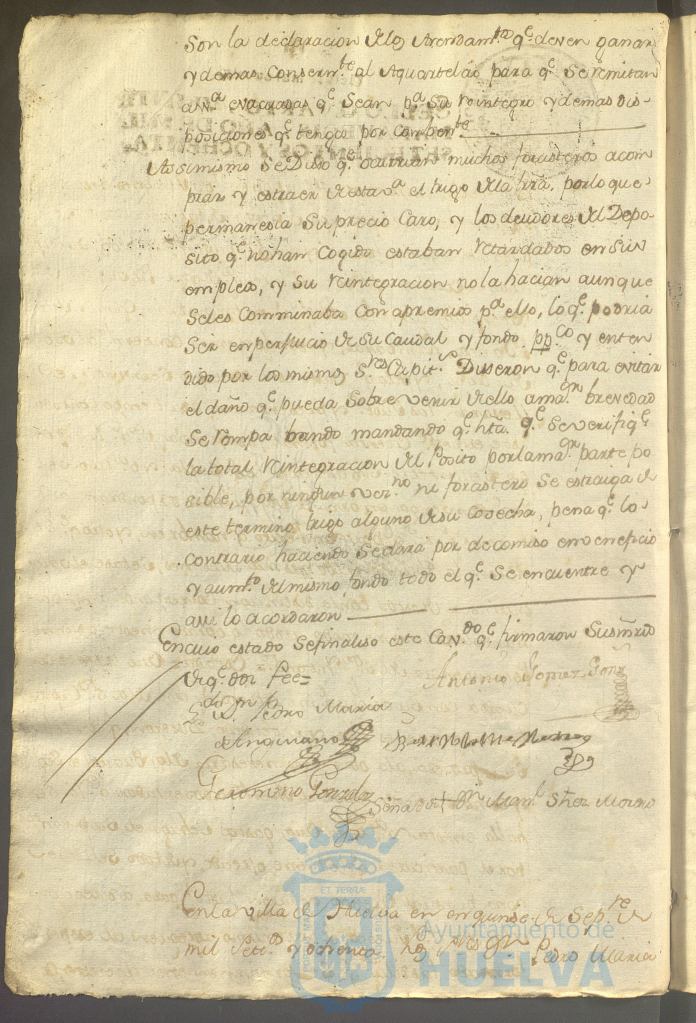 Son la declaracion de los Arendam.tos q.e deven ganar
y demas Consern.te al Aquartelao para q.e Se remitan
evaquadas q.e Sean p.a Su Reintegro y demas dis-
posiciones q.e tengo por Conben.te
Asimismo Se Dijo q.e ocurrian muchos forasteros a com
prar y estraer de esta V.a el trigo de la trra. por lo que
permanesia Su precio Caro, y los deudores del Depo-
sito q.e no han Cogido estaban retardados en Sus
empleos, y Su reintegracion no la hacian aunque
Seles Comminaba Con apremios p.a ello, lo q.e podria
Ser en perjuicio de Su Caudal y fondo pp.co y enten
dido por los mismos S.res Capit.s Dijeron q.e para evitar
el daño q.e pueda Sobre venir de ello a ma.or brevedad
Se rompa bando mandando q.e hta. q.e Se verifiq.e
la total reintegracion del Posito por la ma.or parte po
sible, por ningun vez.no ni forastero Se estraiga de
este termino trigo alguno de su Cosecha, pena q.e lo
contrario haciendo Se dara por decomiso en veneficio
y aum.to del mismo fondo todo el q.e Se encuentre y
asi lo acordaron
En cuio estado Se finaliso este Cav.do q.e firmaron Sus mrds
de q.e doi fee=
Antonio Lopez Gonz
D.n Pedro Maria
de Anguiano
Geronimo Gonzalez
Señal de + D.n Man.l Shez Moreno
En la villa de Huelva en en quinse de Sep.re de
mil Sete.os y ochenta los S.res D.n Pedro Maria
Ayuntamiento de
HUELVA